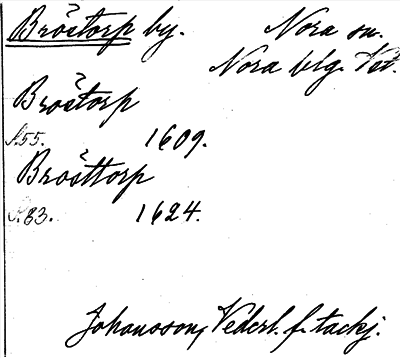 Bröstorp by. Nora sn.
Nora blg. Vst.
Bröstorp
s.55. 1609.
Brösttorp
s.83. 1624.
Johansson, Vederl. f. tackj.